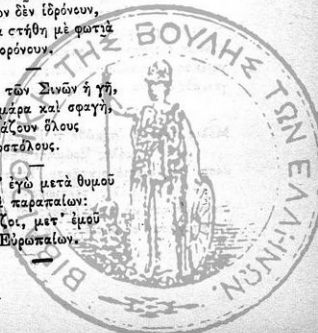 ον δὲν ἱδρόνουν,
α στήθη μὲ φωτιὰ
ορόνουν.
τῶν Σινῶν ἡ γῆ,
μάρα καὶ σφαγὴ,
άζουν ὅλους
οστόλους.
ἐγὼ μετὰ θυμοῦ
παραπαίων:
ζοι, μετ' ἐμοῦ
Εὐρωπαίων.
ΤΗΣ ΒΟΥΛΗΣ ΤΩΝ ΕΛΛΗΝΩΝ